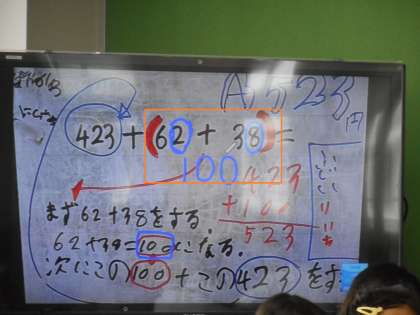 (A) 523
423+(62+38)=
100
423
+100
523
まず62+38をする.
62+38=100になる.
次にこの100+この423をす